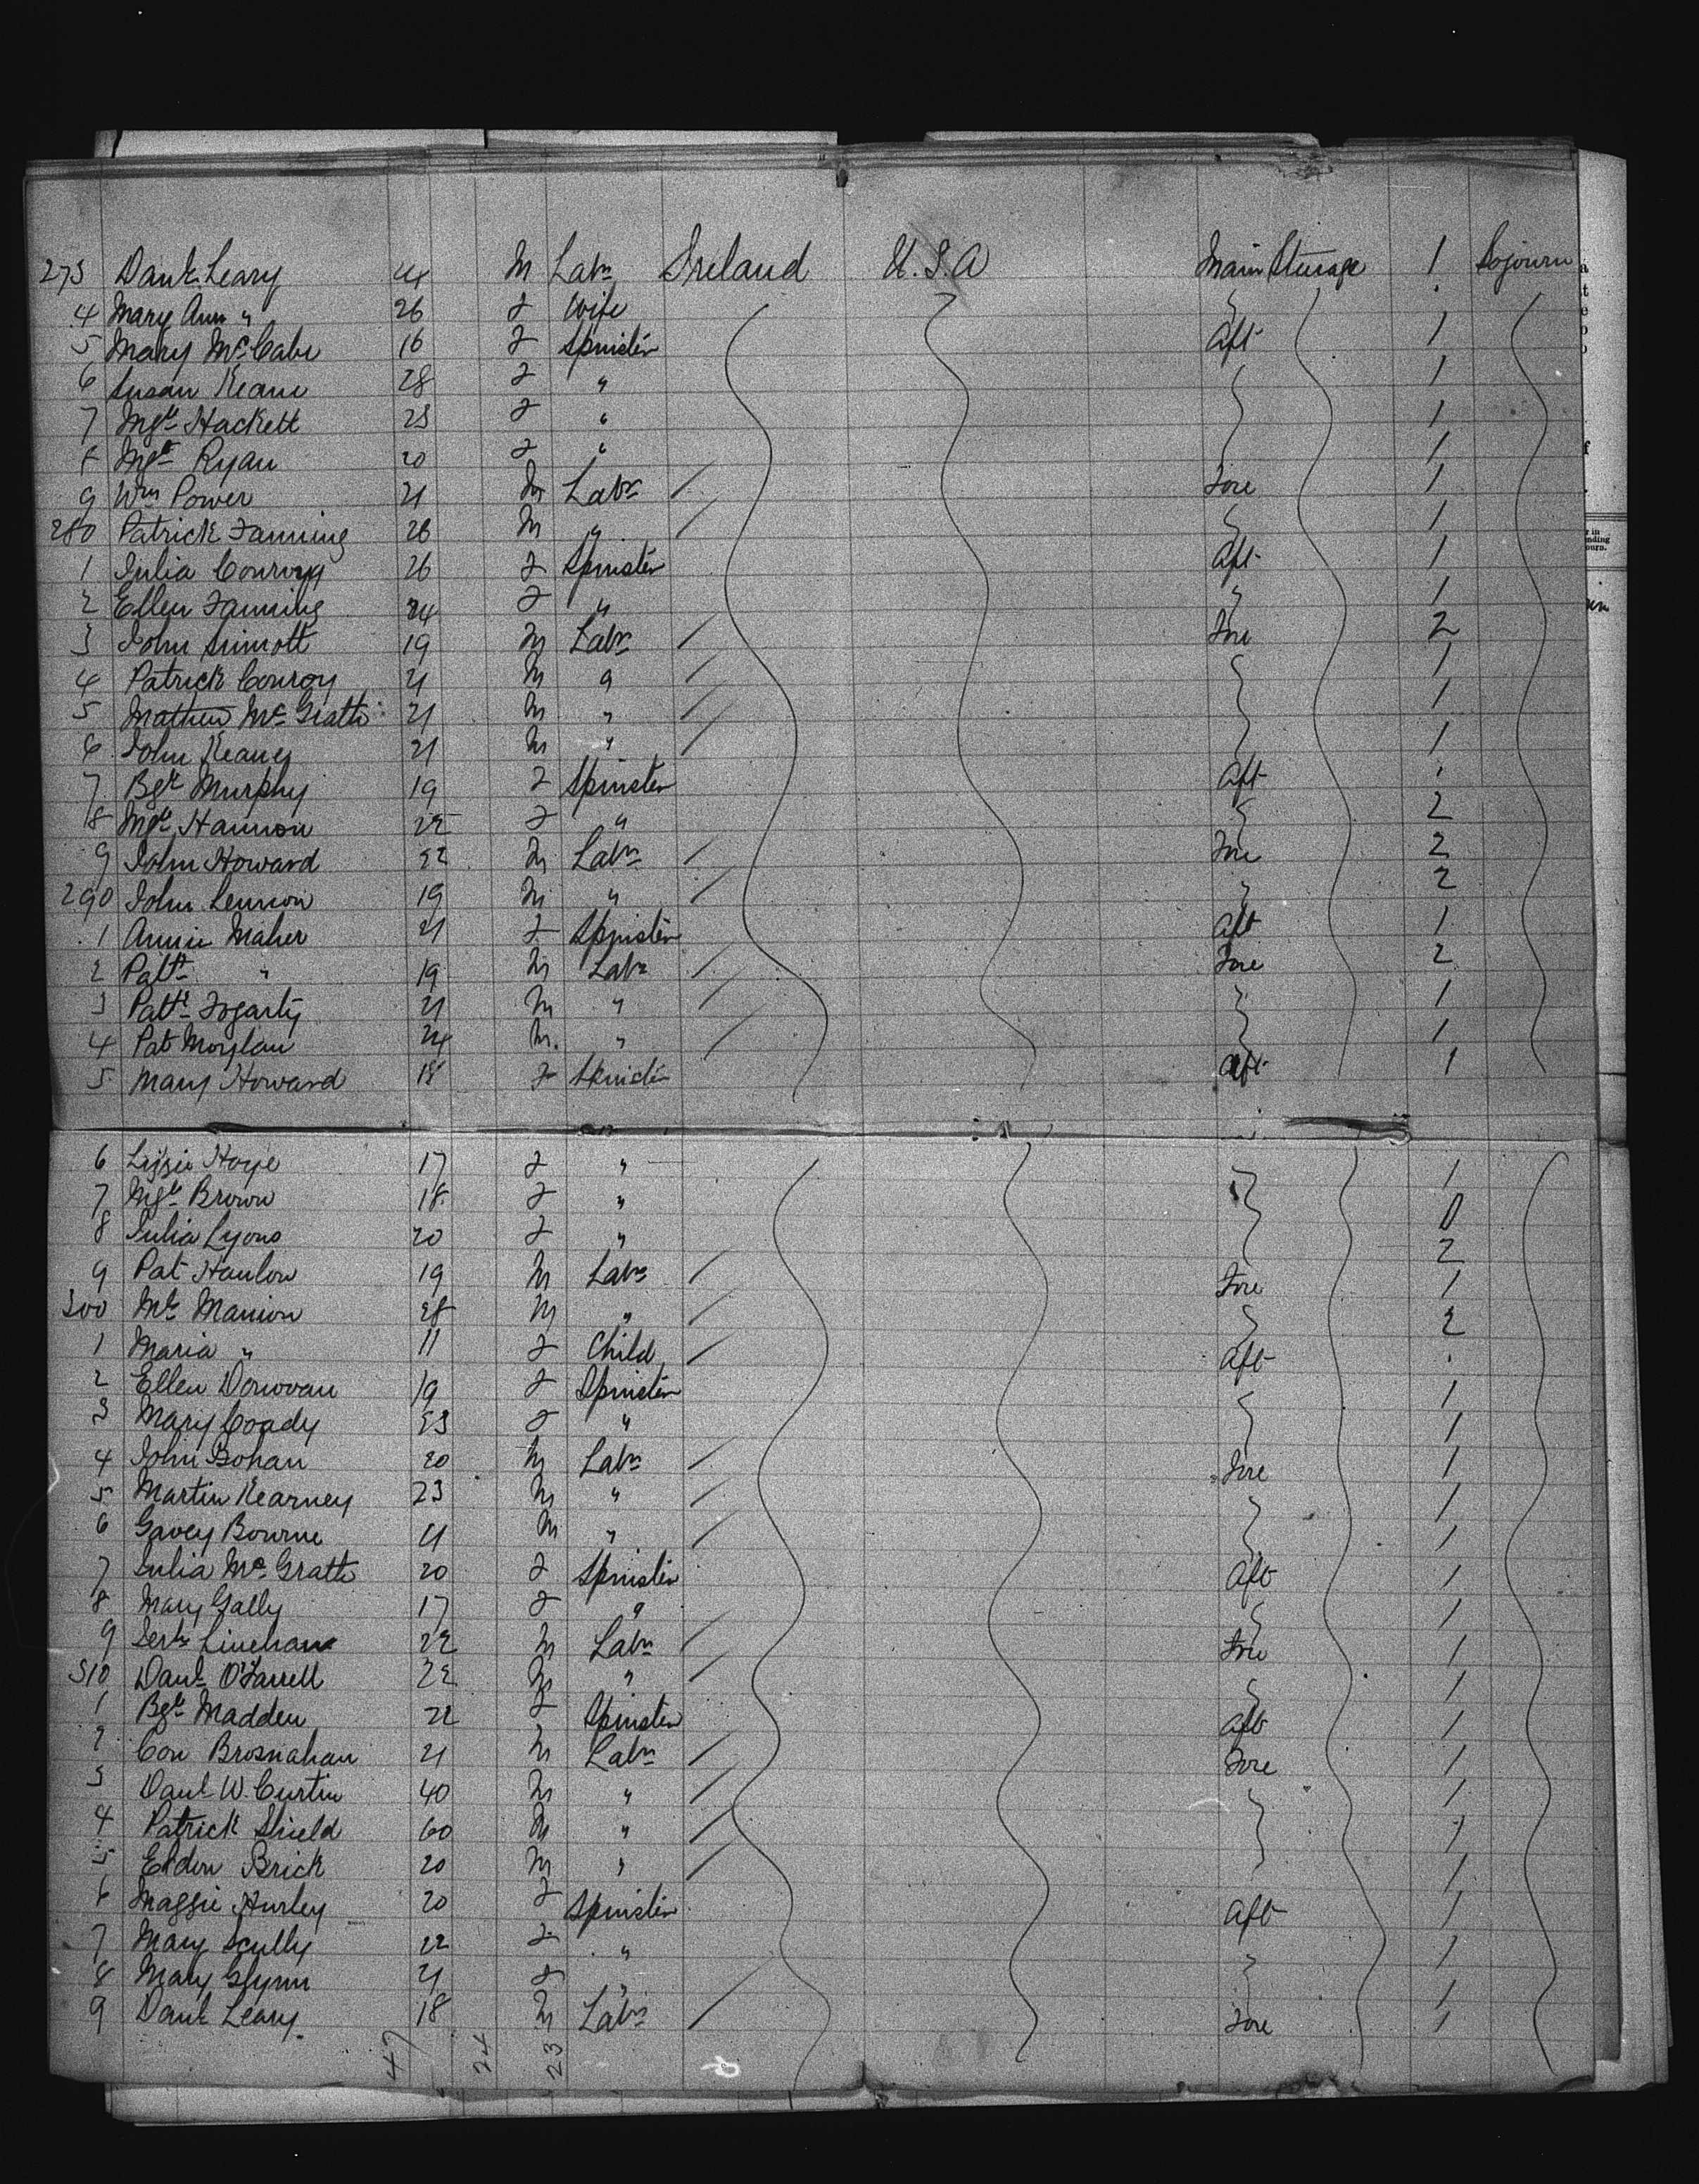 273 Danl. Leary 24 M Labr Ireland U.S.A Main Sturage 1 Sojourn
4 Mary Ann " 26 F Wife
5 Mary McCabe 16 F Spinster Aft 1
6 Susan Keane 28 F " 1
7 Mgt Hackett 23 F " 1
8 Mgt Ryan 20 F " 1
9 Wm Power 21 M Labr Fore 1
280 Patrick Fanning 26 M " 1
1 Julia Conroy 26 F Spinster Aft 1
2 Ellen Fanning 24 F " " 1
3 John Sinnott 19 M Labr Fore 2
4 Patrick Conroy 21 M " 1
5 Mathew McGrath 21 M " 1
6 John Keaney 21 M " 1
7 Bgt Murphy 19 F Spinster Aft
8 Mgt Hannon 22 F " 2
9 John Howard 22 M Labr Fore 2
290 John Lennon 19 M " " 2
1 Annie Maher 21 F Spinster Aft 1
2 Patk " 19 M Labr Fore 2
3 Patk Fogarty 21 M " 1
4 Pat Moylan 24 M. " 1
5 Mary Howard 18 F Spinster Aft 1
6 Lizzie Hoye 17 F " 1
7 Mgt Brown 18 F "
8 Julia Lyons 20 F " 2
9 Pat Hanlon 19 M Labr Fore 1
300 Ml Manion 28 M " 2
1 Maria " 11 F Child Aft
2 Ellen Donovan 19 F Spinster 1
3 Mary Coady 23 F " 1
4 John Bohan 20 M Labr Fore 1
5 Martin Kearney 23 M " 1
6 Gavey Bourne 21 M " 1
7 Julia McGrath 20 F Spinster Aft 1
8 Mary Gally 17 F " 1
9 Linehan 22 M Labr Fore 1
310 Danl O'Farrell 22 M " 1
1 Bgt Madden 22 F Spinster Aft 1
2 Con Brosnahan 21 M Labr Fore 1
3 Danl W. Curtin 40 M " 1
4 Patrick Shield 60 M " 1
5 Brick 20 M " 1
6 Maggie Hurley 20 F Spinster Aft 1
7 Mary Scully 22 F " " 1
8 Mary Glynn 21 F " 1
9 Danl Leary 18 M Labr Fore 1
47 24 23